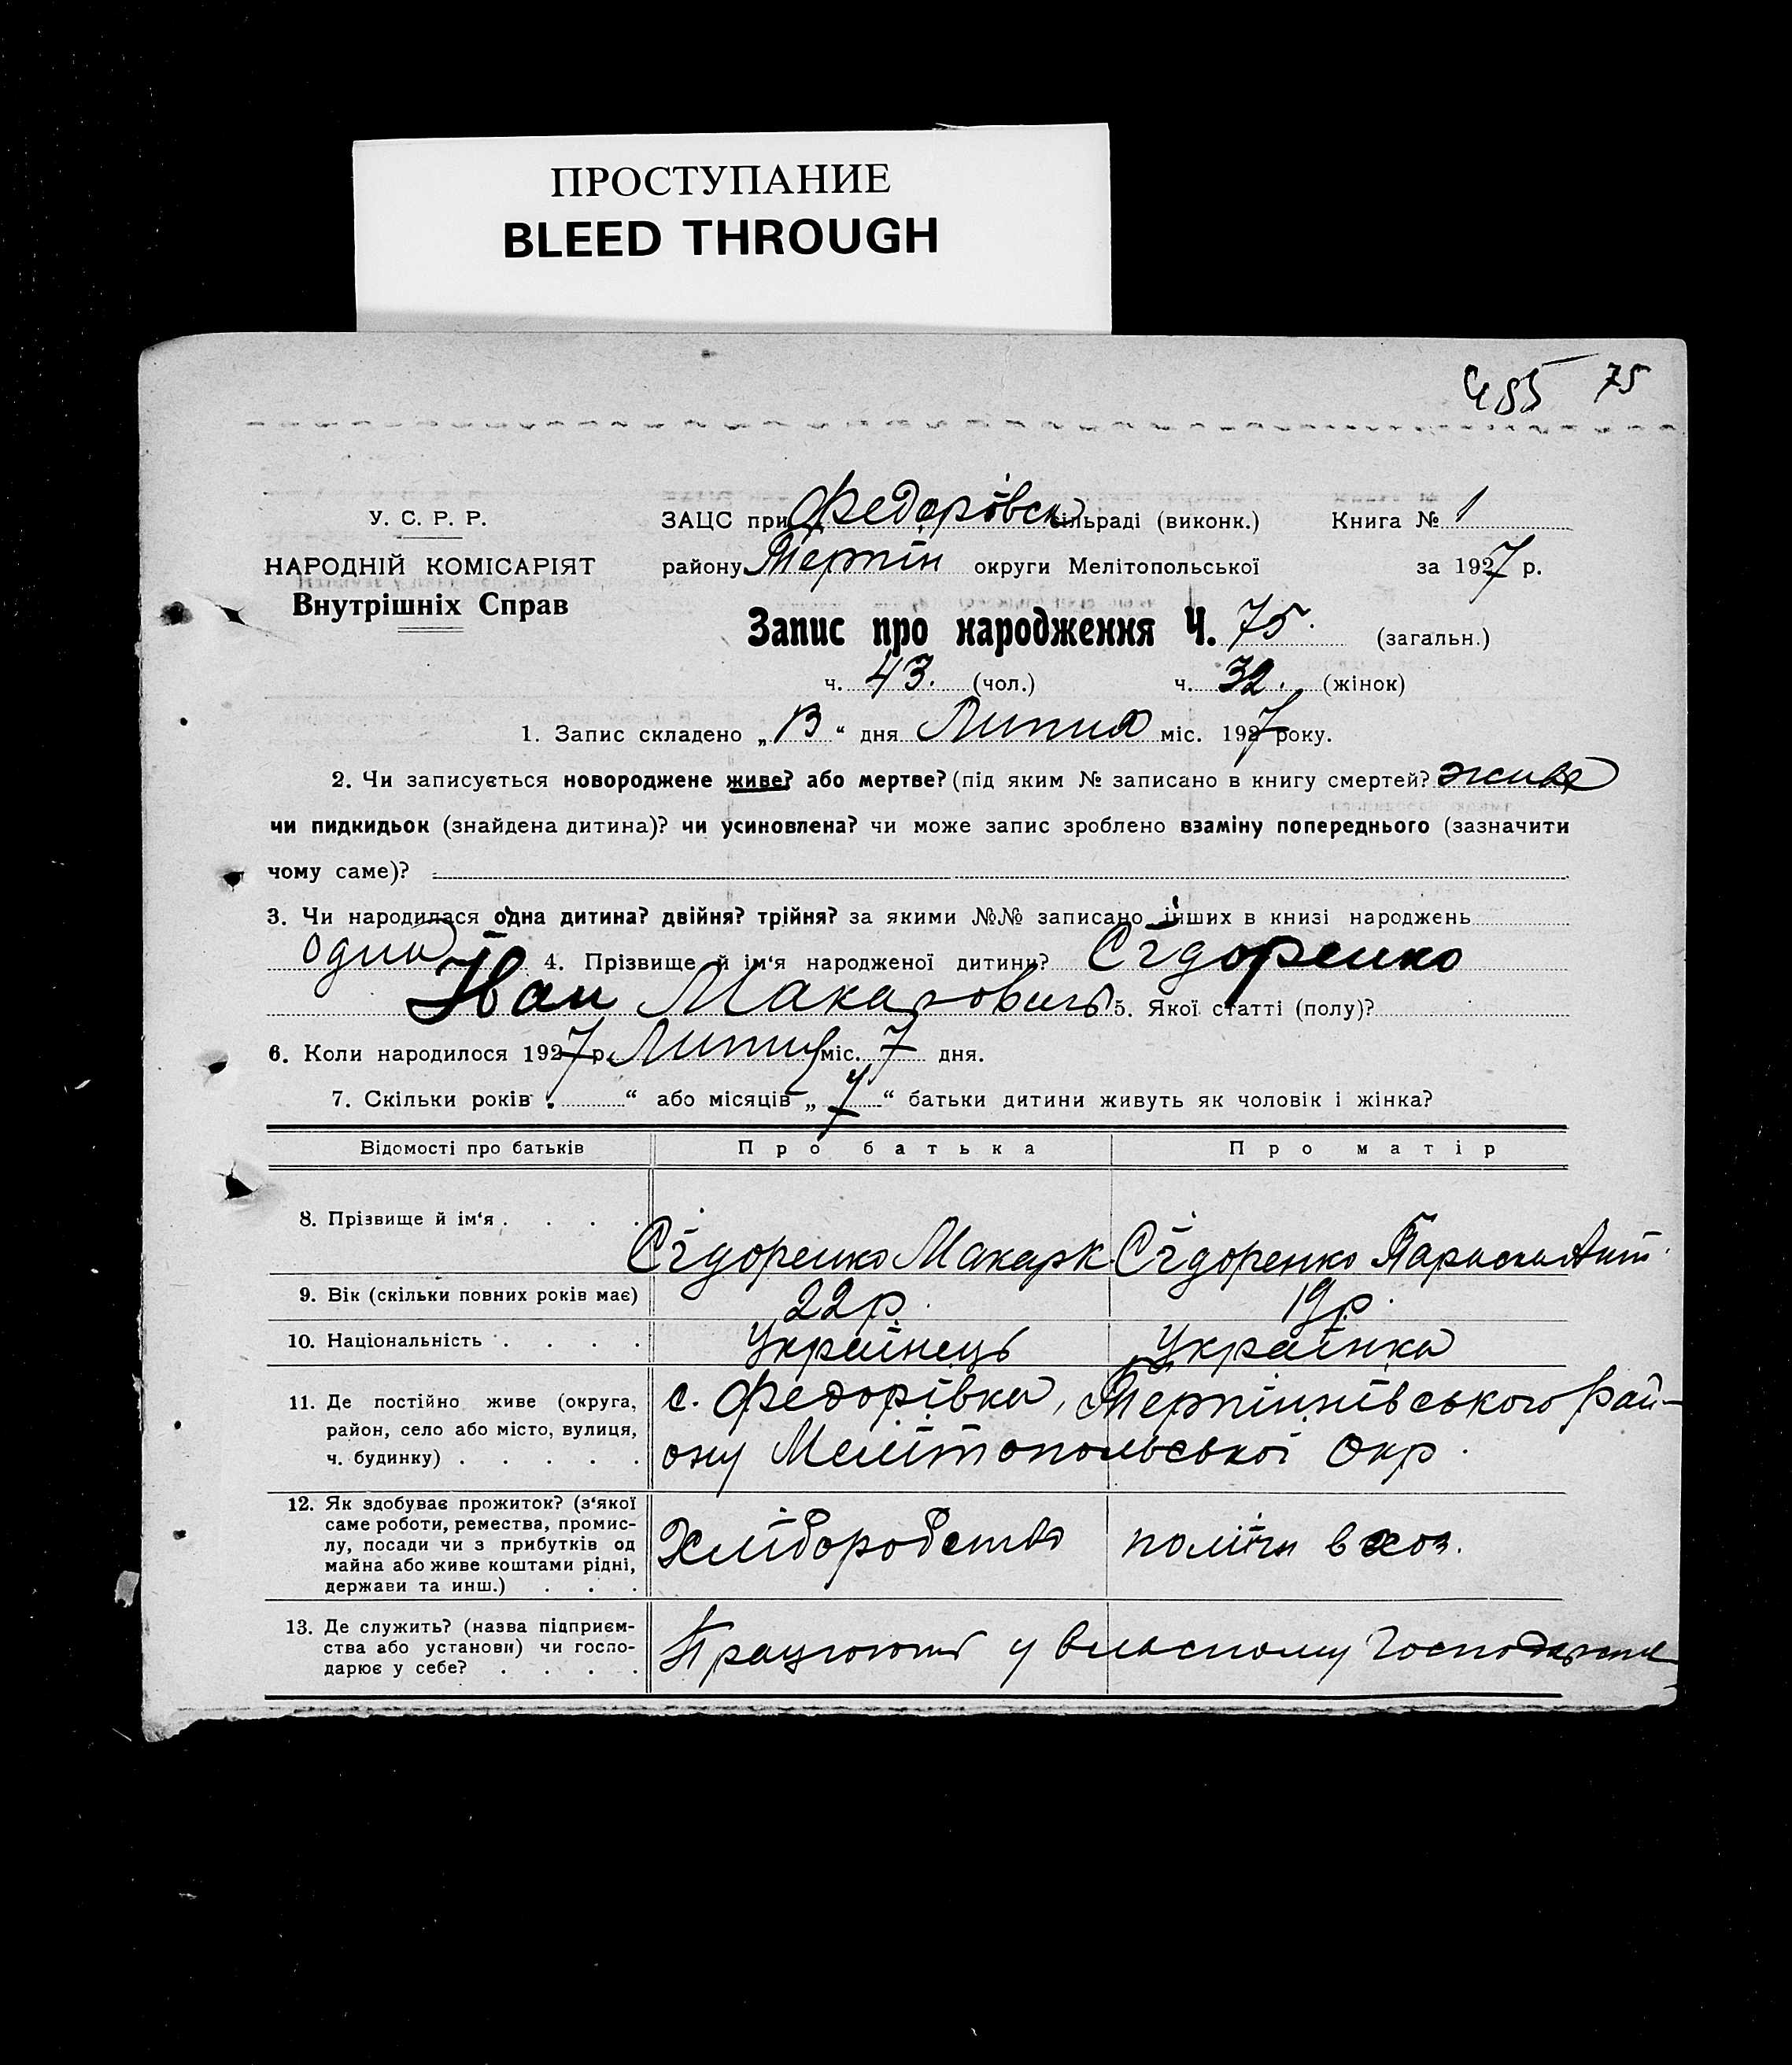 ПРОСТУПАНИЕ
BLEED THROUGH
455 75
У. С. Р. Р.
НАРОДНІЙ КОМІСАРІЯТ
Внутрішніх Справ
ЗАЦС при Федорівск сільраді (виконк.) Книга № 1
району Терпін округи Мелітопольської за 1927 р.
Запис про народження Ч. 75. (загальн.)
ч. 43. (чол.) ч. 32. (жінок)
1. Запис складено „13“ дня Липня міс. 1927 року.
2. Чи записується новороджене живе? або мертве? (під яким № записано в книгу смертей? живе
чи пидкидьок (знайдена дитина)? чи усиновлена? чи може запис зроблено взаміну попереднього (зазначити
чому саме)?
3. Чи народилася одна дитина? двійня? трійня? за якими №№ записано інших в книзі народжень
одна 4. Прізвище й ім‘я народженої дитини? Сідоренко
Іван Макарович 5. Якої статті (полу)?
6. Коли народилося 1927 р. Липня міс. 7 дня.
7. Скільки років „ “ або місяців „ “ батьки дитини живуть як чоловік і жінка?
Відомості про батьків Про батька Про матір
8. Прізвище й ім‘я . . . . Сідоренко Макар К. Сідоренко Параска Ант.
9. Вік (скільки повних років має) 22 р. 19 р.
10. Національність . . . . Українець Українка
11. Де постійно живе (округа,
район, село або місто, вулиця,
ч. будинку) . . . . .
с. Федорівка, Терпіннівського рай-
ону Мелітопольської Окр.
12. Як здобуває прожиток? (з‘якої
саме роботи, ремества, промис-
лу, посади чи з прибутків од
майна або живе коштами рідні,
держави та инш.) . . .
Хліборобство поміч в хоз.
13. Де служить? (назва підприєм-
ства або установи) чи госпо-
дарює у себе? . . . .
Працюють у власному